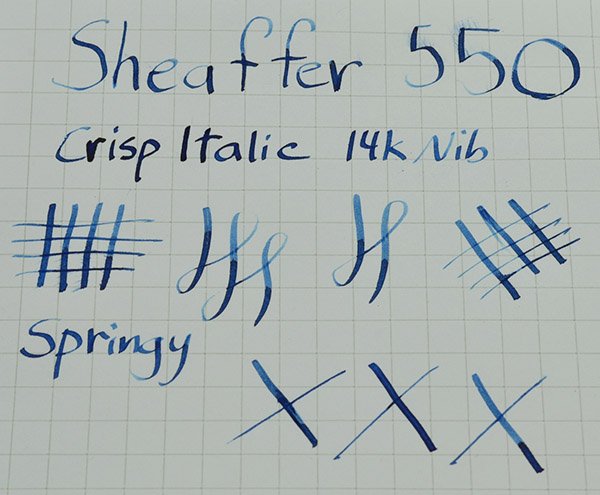 Sheaffer 550
Crisp Italic 14k Nib
Springy